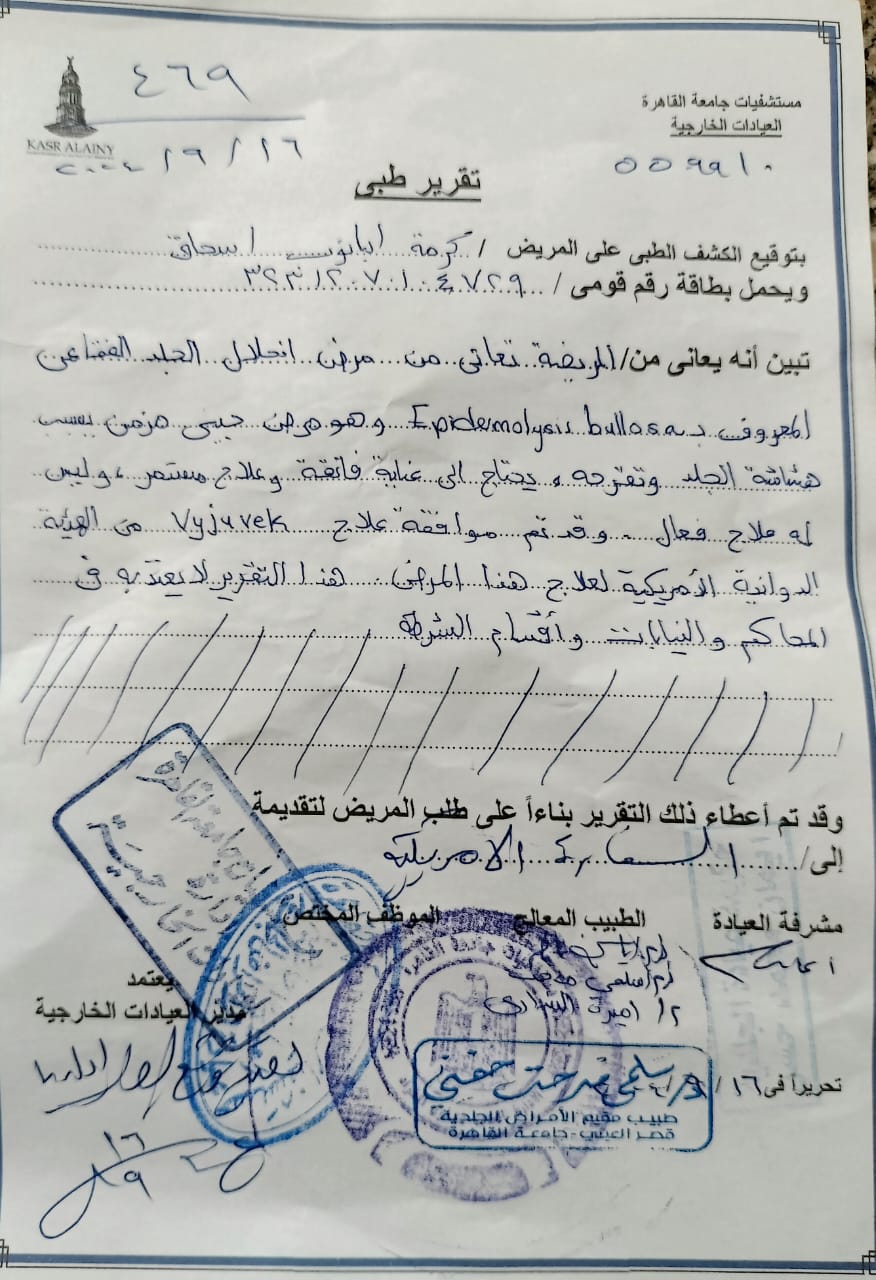 ٤٦٩
مستشفيات جامعة القاهرة
العيادات الخارجية
KASR ALAINY
٢٠٢٤/٩/١٦
٥٥٩٩١٠
تقرير طبى
بتوقيع الكشف الطبى على المريض / كرمة ابانوب اسحاق
ويحمل بطاقة رقم قومى / ٣٢٣١٢٠٧٠١٠٤٧٢٩
تبين أنه يعانى من/ المريضة تعانى من مرض انحلال الجلد الفقاعى
المعروف بـ Epidemolysis bullosa وهو مرض جينى مزمن يسبب
هشاشة الجلد وتقرحه ، يحتاج الى عناية فائقة وعلاج مستمر ، وليس
له علاج فعال . وقد تم موافقة علاج Vyjuvek من الهيئة
الدوائية الأمريكية لعلاج هذا المرض . هذا التقرير لا يعتد به فى
المحاكم والنيابات وأقسام الشرطة
وقد تم أعطاء ذلك التقرير بناءاً على طلب المريض لتقديمة
إلى/ السفارة الامريكية
مشرفة العيادة
الطبيب المعالج
الموظف المختص
د/ سلمى مدحت
د/ اميرة
يعتمد
مدير العيادات الخارجية
تحريراً فى ١٦ / ٩ /
سلمى مدحت حفنى
طبيب مقيم الأمراض الجلدية
قصر العينى - جامعة القاهرة
١٦
٩